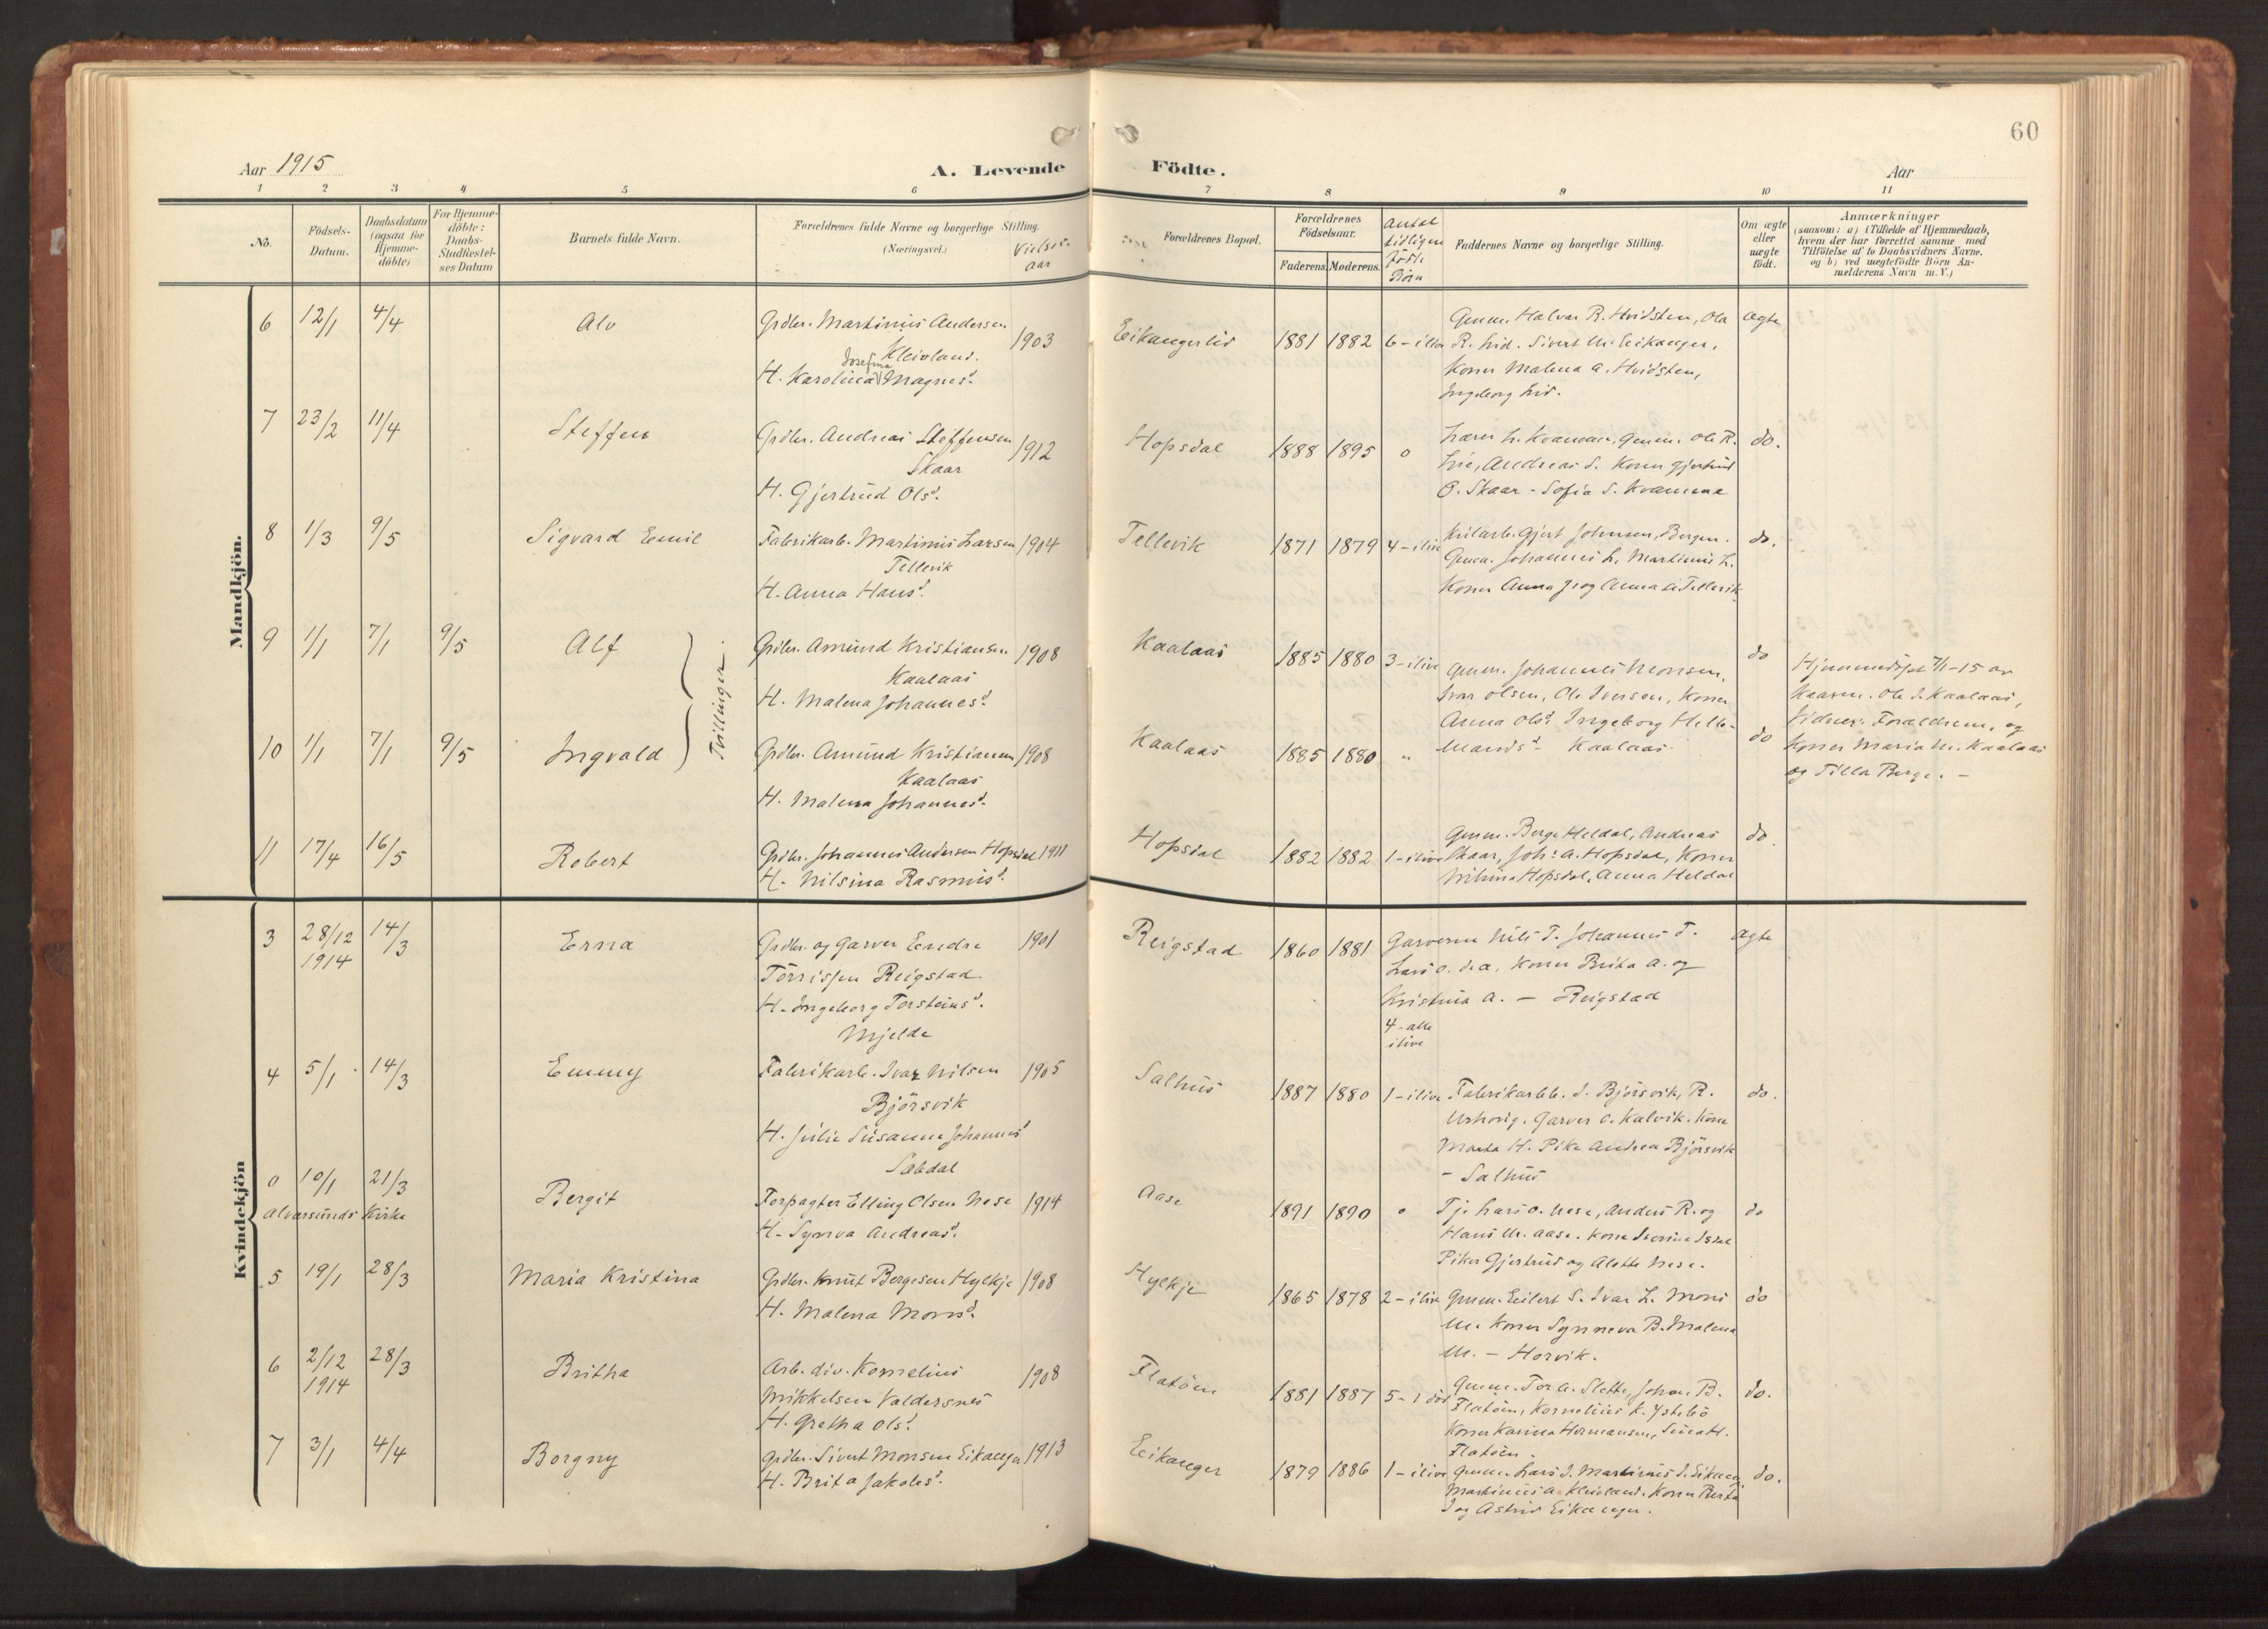 60
Aar 1915
A. Levende Födte.
Aar
1 2 3 4 5 6 7 8 9 10 11
No.
Födsels-
Datum.
Daabsdatum
(ogsaa for
Hjemme-
döbte)
For Hjemme-
döbte:
Daabs-
Stadfæstel-
ses Datum
Barnets fulde Navn.
Forældrenes fulde Navne og borgerlige Stilling.
(Næringsvei.)
Vielses-
aar
Forældrenes Bopæl.
Forældrenes
Födselsaar.
Faderens. Moderens.
Antal
tidligere
födte
Börn
Faddernes Navne og borgerlige Stilling.
Om ægte
eller
uægte
födt.
Anmærkninger
(saasom: a) i Tilfælde af Hjemmedaab,
hvem der har forrettet samme med
Tilföielse af to Daabsvidners Navne.
og b) ved uægtefödte Börn An-
melderens Navn m. V.)
Mandkjön.
6 12/1 4/4 Alv
Grdbr. Martinius Andersen 1903
Kleivland.
Josefina
H. Karolina Magnesd.
Eikangerlid 1881 1882 6 - ilive
Gmm. Halvar R. Hvidsten, Ola
R. Lid. Sivert M. Eikanger,
Koner Malena A. Hvidsten,
Ingeborg Lid.
ægte
7 23/2 11/4 Steffen
Grdbr. Andreas Steffensen 1912
Skaar
H. Gjertrud Olsd.
Hopsdal 1888 1895 0
Lærer L. Kvamme, Gmm. Ole R.
Lie, Andreas S. Koner Gjertrud
O. Skaar - Sofia S. Kvamme
do.
8 1/3 9/5 Sigvard Emil
Fabrikarb. Martinius Larsen 1904
Tellevik
H. Anna Hansd.
Tellevik 1871 1879 4 - ilive
Gjert Johnsen, Bergen.
Gmm. Johannes L. Martinius L.
Koner Anna J. og Anna L. Tellevik
do.
9 1/1 7/1 9/5 Alf
Tvillinger
Grdbr. Amund Kristiansen 1908
Kaalaas
H. Malena Johannesd.
Kaalaas 1885 1880 3 - ilive
Gmm. Johannes Monsen,
Ivar Olsen, Ole Iversen, Koner
Anna Olsd. Ingeborg Helle-
Mandsd. Kaalaas.
do
Hjemmedøpt 7/1-15 av
Ole I. Kaalaas,
Vidner: Forældrene, og
Koner Maria M. Kaalaas
og Tilla Berge. -
10 1/1 7/1 9/5 Ingvald
Grdbr. Amund Kristiansen 1908
Kaalaas
H. Malena Johannesd.
Kaalaas 1885 1880 "
do
11 17/4 16/5 Robert
Grdbr. Johannes Andersen Hopsdal 1911
H. Nilsina Rasmusd.
Hopsdal 1882 1882 1 - ilive
Gmm. Berge Heldal, Andreas
Skaar, Johs. A. Hopsdal, Koner
Nilsina Hopsdal, Anna Heldal
do.
Kvindekjön
3 28/12 14/3 Erna
1914
Grdbr. og Garver Endre 1901
Torrissen Reigstad
H. Ingeborg Torsteinsd.
Mjelde
Reigstad 1860 1881
Garverne Nils T. Johannes T.
Lars O. Koner Brita A. og
Kristina A. - Reigstad
4 - alle
ilive
ægte
4 5/1 14/3 Emmy
Fabrikarb. Ivar Nilsen 1905
Björsvik
H. Julie Susanne Johannesd
Sabdal
Salhus 1887 1880 1 - ilive
Fabrikarbb. I. Björsvik, R.
Garver O. Kalvik. Kone
Marta H. Pike Andrea Björsvik
- Salhus
do.
0 10/1 21/3 Bergit
Alversunds Kirke
Forpagter Elling Olsen Nese 1914
H. Synva Andreasd.
Aase 1891 1890 0
Tj. Lars O. Nese, Anders R. og
Hans M. Aase. Kone Severine Isdal
Piker Gjertrud og Alette Nese.
do
5 19/1 28/3 Maria Kristina
Grdbr. Knut Bergesen Hylkje 1908
H. Malena Monsd.
Hylkje 1865 1878 2 - ilive
Gmm. Eilert S. Ivar L. Mons
M. Koner Synneva B. Malena
M. - Horvik.
do
6 2/12 28/3 Britha
1914
Arb. div. Kornelius 1908
Mikkelsen Valdersnes
H. Gretha Olsd.
Flatöen 1881 1887 5 - 1 död
Gmm. Tor A. Slette, Johan B.
Flatöen, Kornelius K. Ystebö
Koner Karina Hermansen,
Flatöen.
do.
7 3/1 4/4 Borgny
Grdbr. Sivert Monsen Eikanger 1913
H. Brita Jakobsd.
Eikanger 1879 1886 1 - ilive
Gmm. Lars I. Martinius I. Eikanger
Martinius A. Kleivland. Koner Berta
I og Astrid Eikanger.
do.